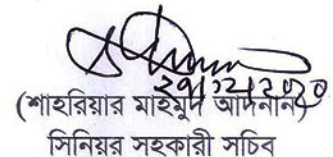 ২৭/১২/২০২০
(শাহরিয়ার মাহমুদ আদনান)
সিনিয়র সহকারী সচিব